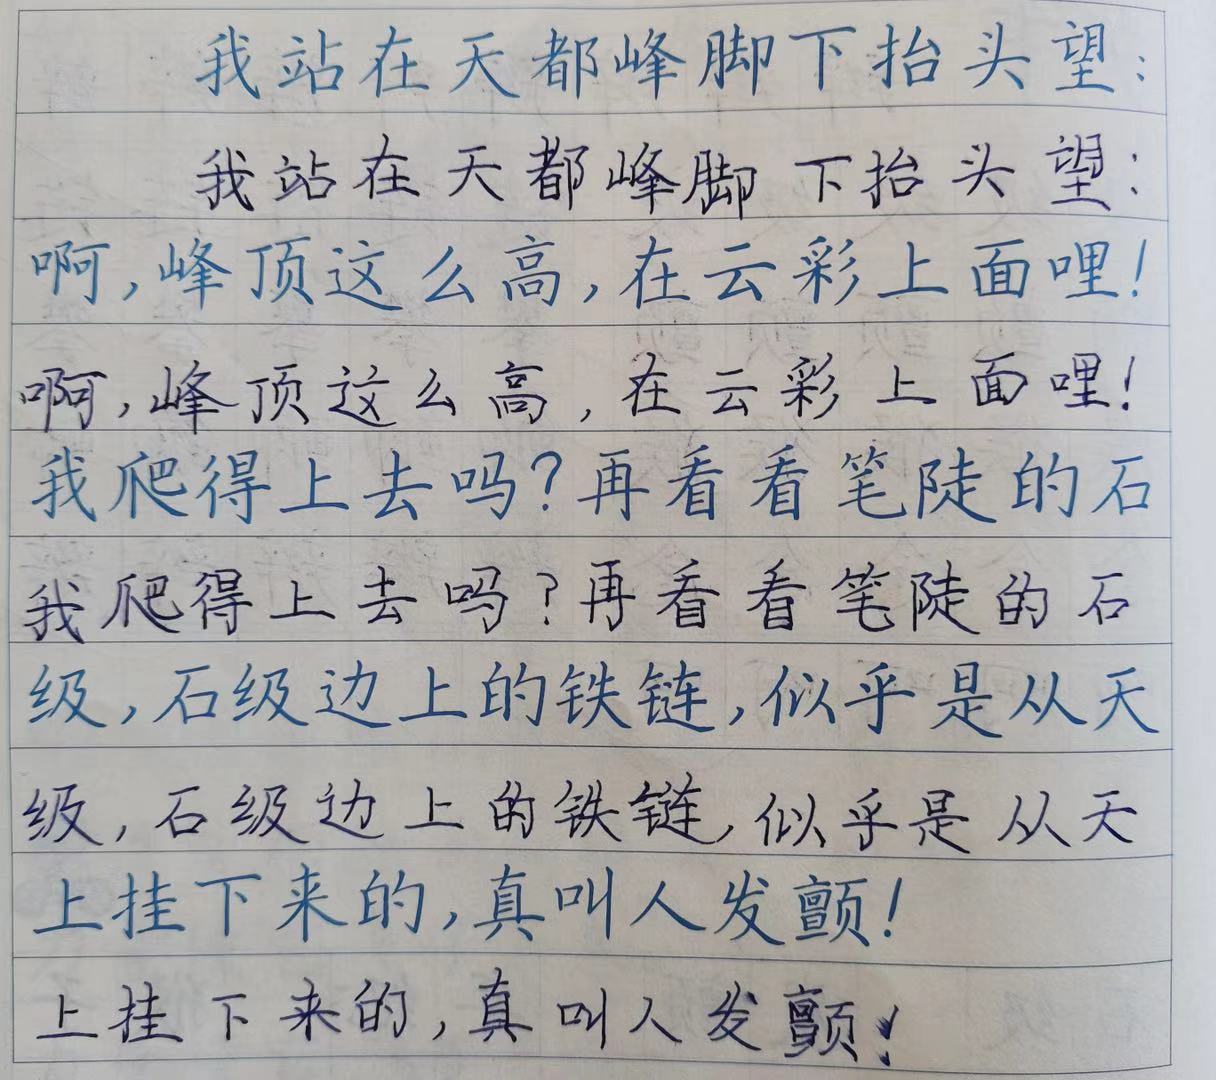 我站在天都峰脚下抬头望：
我站在天都峰脚下抬头望：
啊，峰顶这么高，在云彩上面哩！
啊，峰顶这么高，在云彩上面哩！
我爬得上去吗？再看看笔陡的石
我爬得上去吗？再看看笔陡的石
级，石级边上的铁链，似乎是从天
级，石级边上的铁链，似乎是从天
上挂下来的，真叫人发颤！
上挂下来的，真叫人发颤！